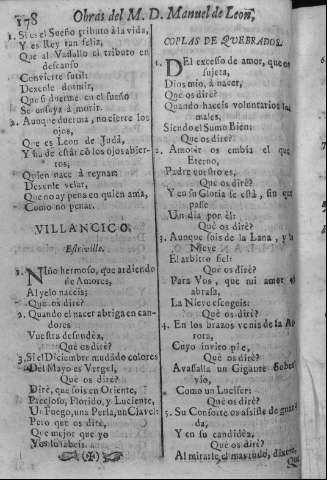 178 Obras del M. D. Manuel de Leon,
1. Si es el Sueño tributo à la vida,
Y es Rey tan feliz,
Que al Vassallo el tributo en
descanso
Convierte sutil:
Dexenle dormir,
Que si duerme en el sueño
Se ensaya à morir.
2. Aunque duerma, no cierre los
ojos,
Que es Leon de Judà,
Y ha de estàr cõ los ojos abier-
tos,
Quien nace à reynar:
Dexenle velar,
Que no ay pena en quien ama,
Como no penar.
VILLANCICO.
Estrivillo.
1. Niño hermoso, que ardiendo
de Amores,
Al yelo naceis;
Que os dirè?
2. Quando el nacer abriga en can-
dores
Vuestra desnudèz,
Què os dirè?
3. Si el Diciembre mudãdo colores
Del Mayo es Vergèl,
Què os dirè?
Dirè, que sois en Oriente,
Precioso, Florido, y Luciente,
Un Fuego, una Perla, un Clavel:
Pero què os dirè,
Que mejor que yo
Vos lo sabeis.
COPLAS DE QUEBRADOS.
1. Del excesso de amor, que os
sujeta,
Dios mio, à nacer,
Què os dirè?
Quando haceis voluntarios los
males,
Siendo el Sumo Bien:
Què os dirè?
2. Amor os embia el que
Eterno,
Padre vuestro es,
Què os dirè?
Y en su Gloria se està, sin que
passe
Un dia por èl:
Què os dirè?
3. Aunque sois de la Lana, y la
Nieve
El arbitro fiel:
Què os dirè?
Para Vos, que mi amor os
abrasa,
La Nieve escogeis:
Què os dirè?
4. En los brazos venis de la Au-
rora,
Cuyo invicto pie,
Què os dirè?
Avassalla un Gigante sober-
vio,
Como un Lucifer:
Què os dirè?
5. Su Consorte os assiste de guar-
da,
Y en su candidèz,
Què os dirè?
Al mirarle el mas rudo, dixera,
Que